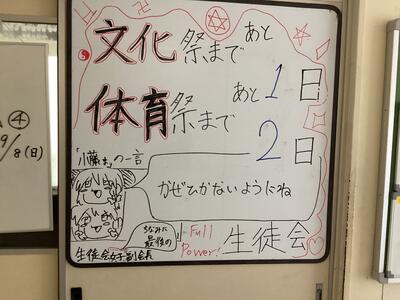 文化祭まで あと1日
体育祭まで あと2日
の一言
かぜひかないようにね
ちなみに
最後の
生徒会女子副会長
Full
Power!
生徒会
④
9/8(日)